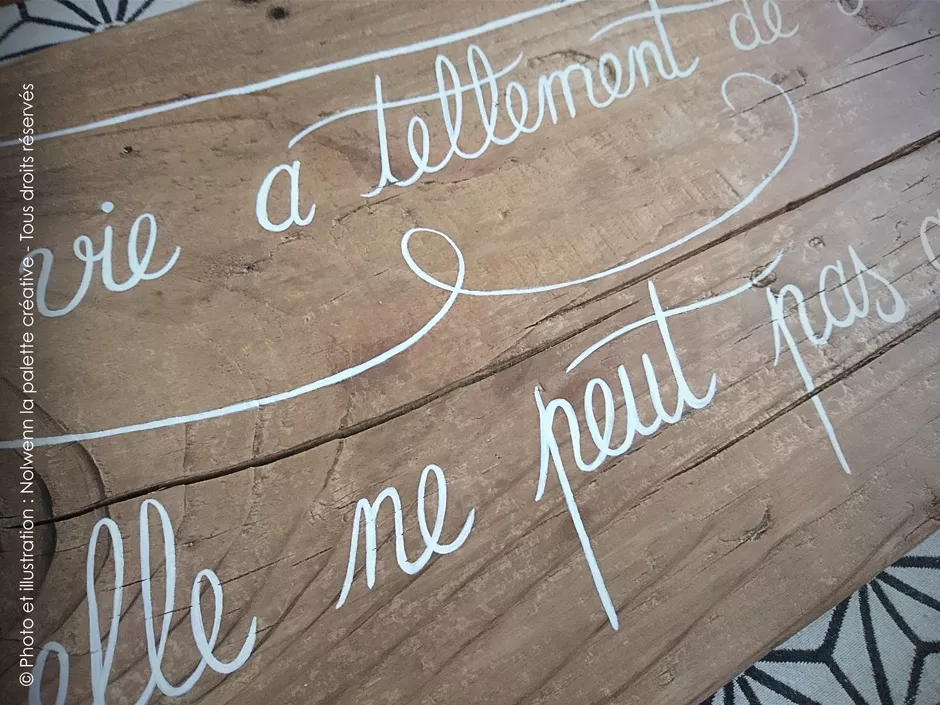 vie a tellement de
elle ne peut pas
© Photo et illustration : Nolwenn la palette créative - Tous droits réservés